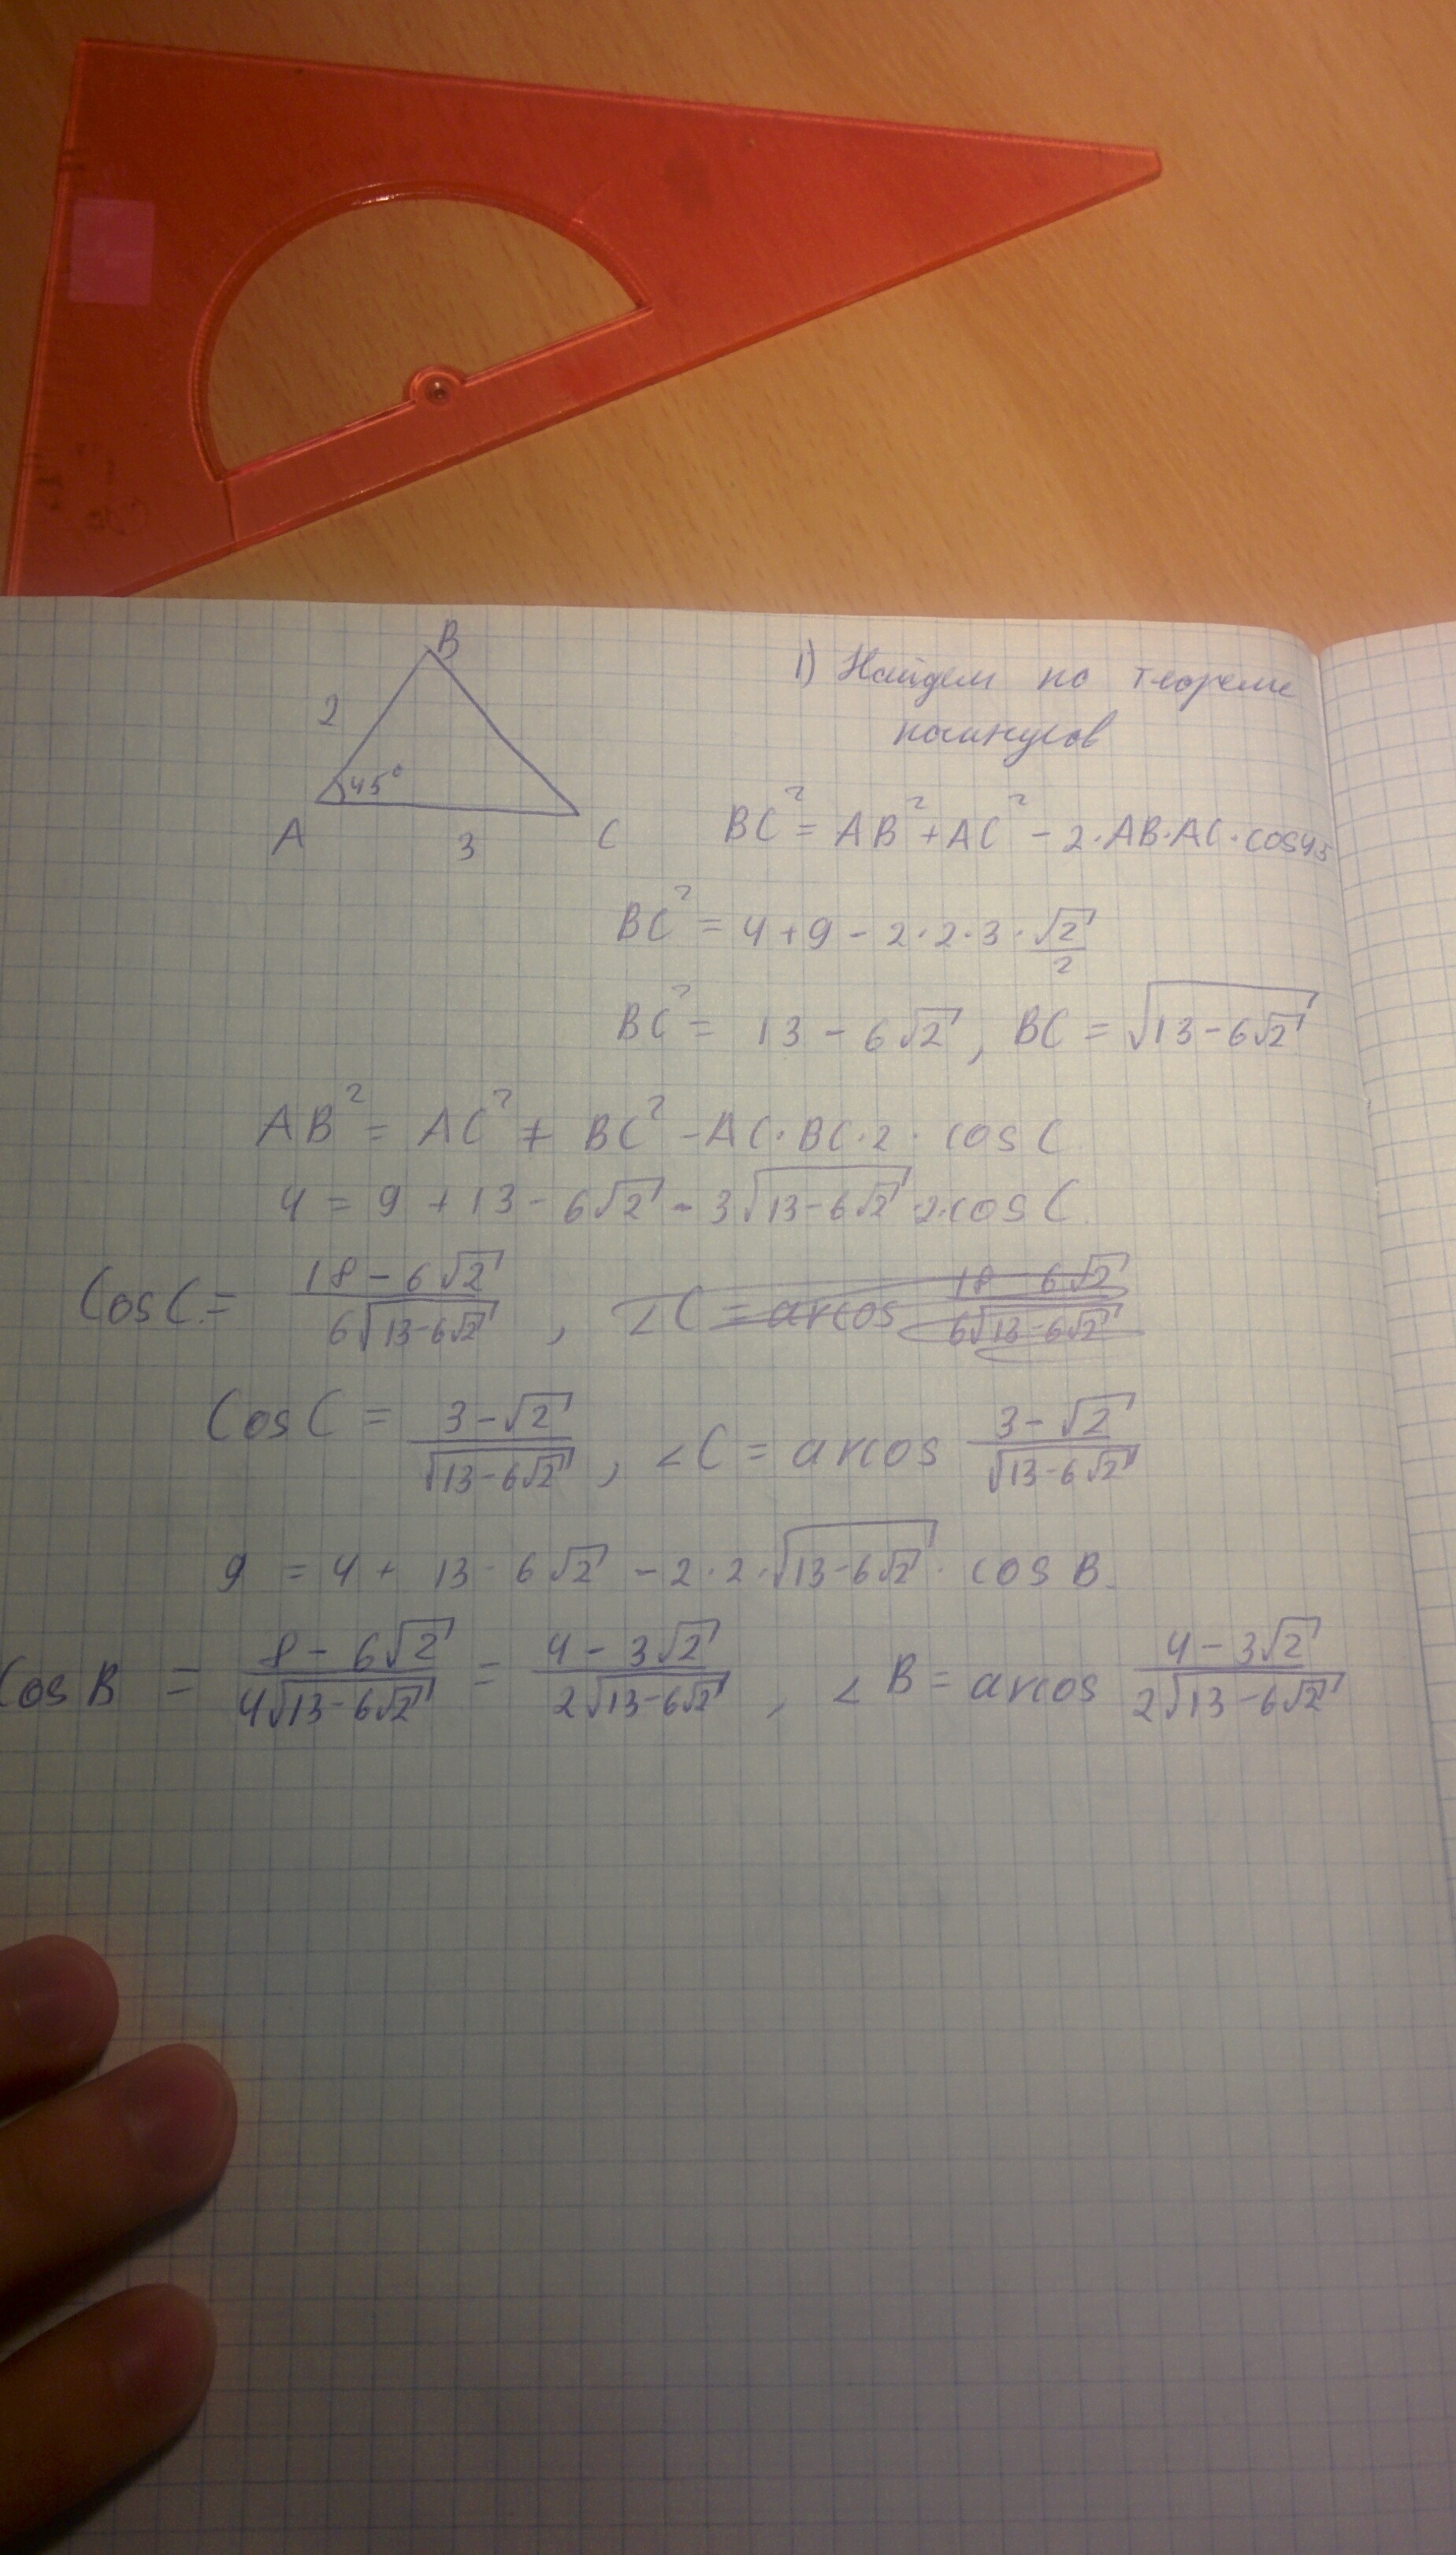 B
2
45°
A
3
C
1) Найдем по теореме
косинусов
BC² = AB² + AC² - 2·AB·AC·cos45
BC² = 4 + 9 - 2·2·3·√2/2
BC² = 13 - 6√2, BC = √(13-6√2)
AB² = AC² + BC² - AC·BC·2·cos C
4 = 9 + 13 - 6√2 - 3√(13-6√2)·2·cos C.
Cos C = (18-6√2)/(6√(13-6√2)), ∠C = arcos (18-6√2)/(6√(13-6√2))
Cos C = (3-√2)/√(13-6√2), ∠C = arcos (3-√2)/√(13-6√2)
9 = 4 + 13 - 6√2 - 2·2·√(13-6√2)·cos B.
Cos B = (8-6√2)/(4√(13-6√2)) = (4-3√2)/(2√(13-6√2)), ∠B = arcos (4-3√2)/(2√(13-6√2))